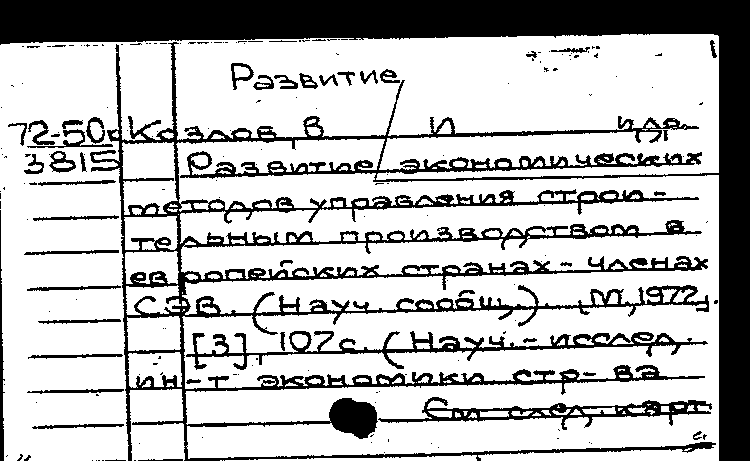 Развитие
72-50
3815
Козлов, В И и др.
Развитие экономических
методов управления строи-
тельным производством в
европейских странах - членах
СЭВ. (Науч. сообщ.). М, 1972.
[3], 107с. (Науч.-исслед.
ин-т экономики стр-ва
См след. карт